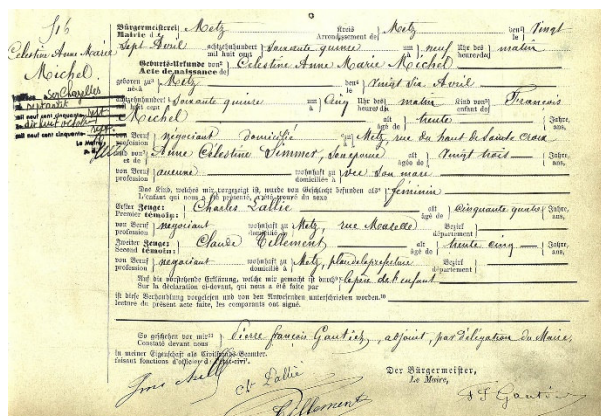 516
Celestine Anne Marie
Michel
Bürgermeisterei Metz Kreis Metz den Vingt
Mairie d Arrondissement de
sept Avril achtzehnhundert mil huit cent soixante quinze à neuf Uhr des heures du matin
Geburts-Urkunde von Celestine Anne Marie Michel
Acte de naissance de
geboren zu né à Metz den Vingt six Avril
achtzehnhundert mil huit cent soixante quinze à cinq Uhr des heures du matin Kind von enfant de François
Michel alt âgé de trente Jahre, ans,
von Beruf profession négociant domicilié à Metz, rue du haut de Sainte Croix
und von et de Anne Célestine Simmer, son épouse alt âgée de Vingt trois Jahre, ans,
von Beruf profession aucune wohnhaft zu domiciliée à avec son mari
Das Kind, welches mir vorgezeigt ist, wurde von Geschlecht befunden als
L'enfant qui nous a été présenté, a été trouvé du sexe féminin
Erster Zeuge: Premier témoin: Charles Lallié alt âgé de Cinquante quatre Jahre, ans,
von Beruf profession négociant wohnhaft zu domicilié à Metz, rue Mazelle Bezirk département
Zweiter Zeuge: Second témoin: Claude Tillement alt âgé de trente cinq Jahre, ans,
von Beruf profession négociant wohnhaft zu domicilié à Metz, place de la préfecture Bezirk département
Auf die vorstehende Erklärung, welche mir gemacht ist durch
Sur la déclaration ci-devant, qui nous a été faite par le père de l'enfant
ist diese Verhandlung vorgelesen und von den Anwesenden unterschrieben worden.
lecture du présent acte faite, les comparants ont signé.
So geschehen vor mir
Constaté devant nous Pierre François Gautiez, adjoint, par délégation du Maire,
in meiner Eigenschaft als Civilstands-Beamter.
faisant fonctions d'officier de l'état-civil.
Der Bürgermeister,
Le Maire,
Ch Lallié
Tillement